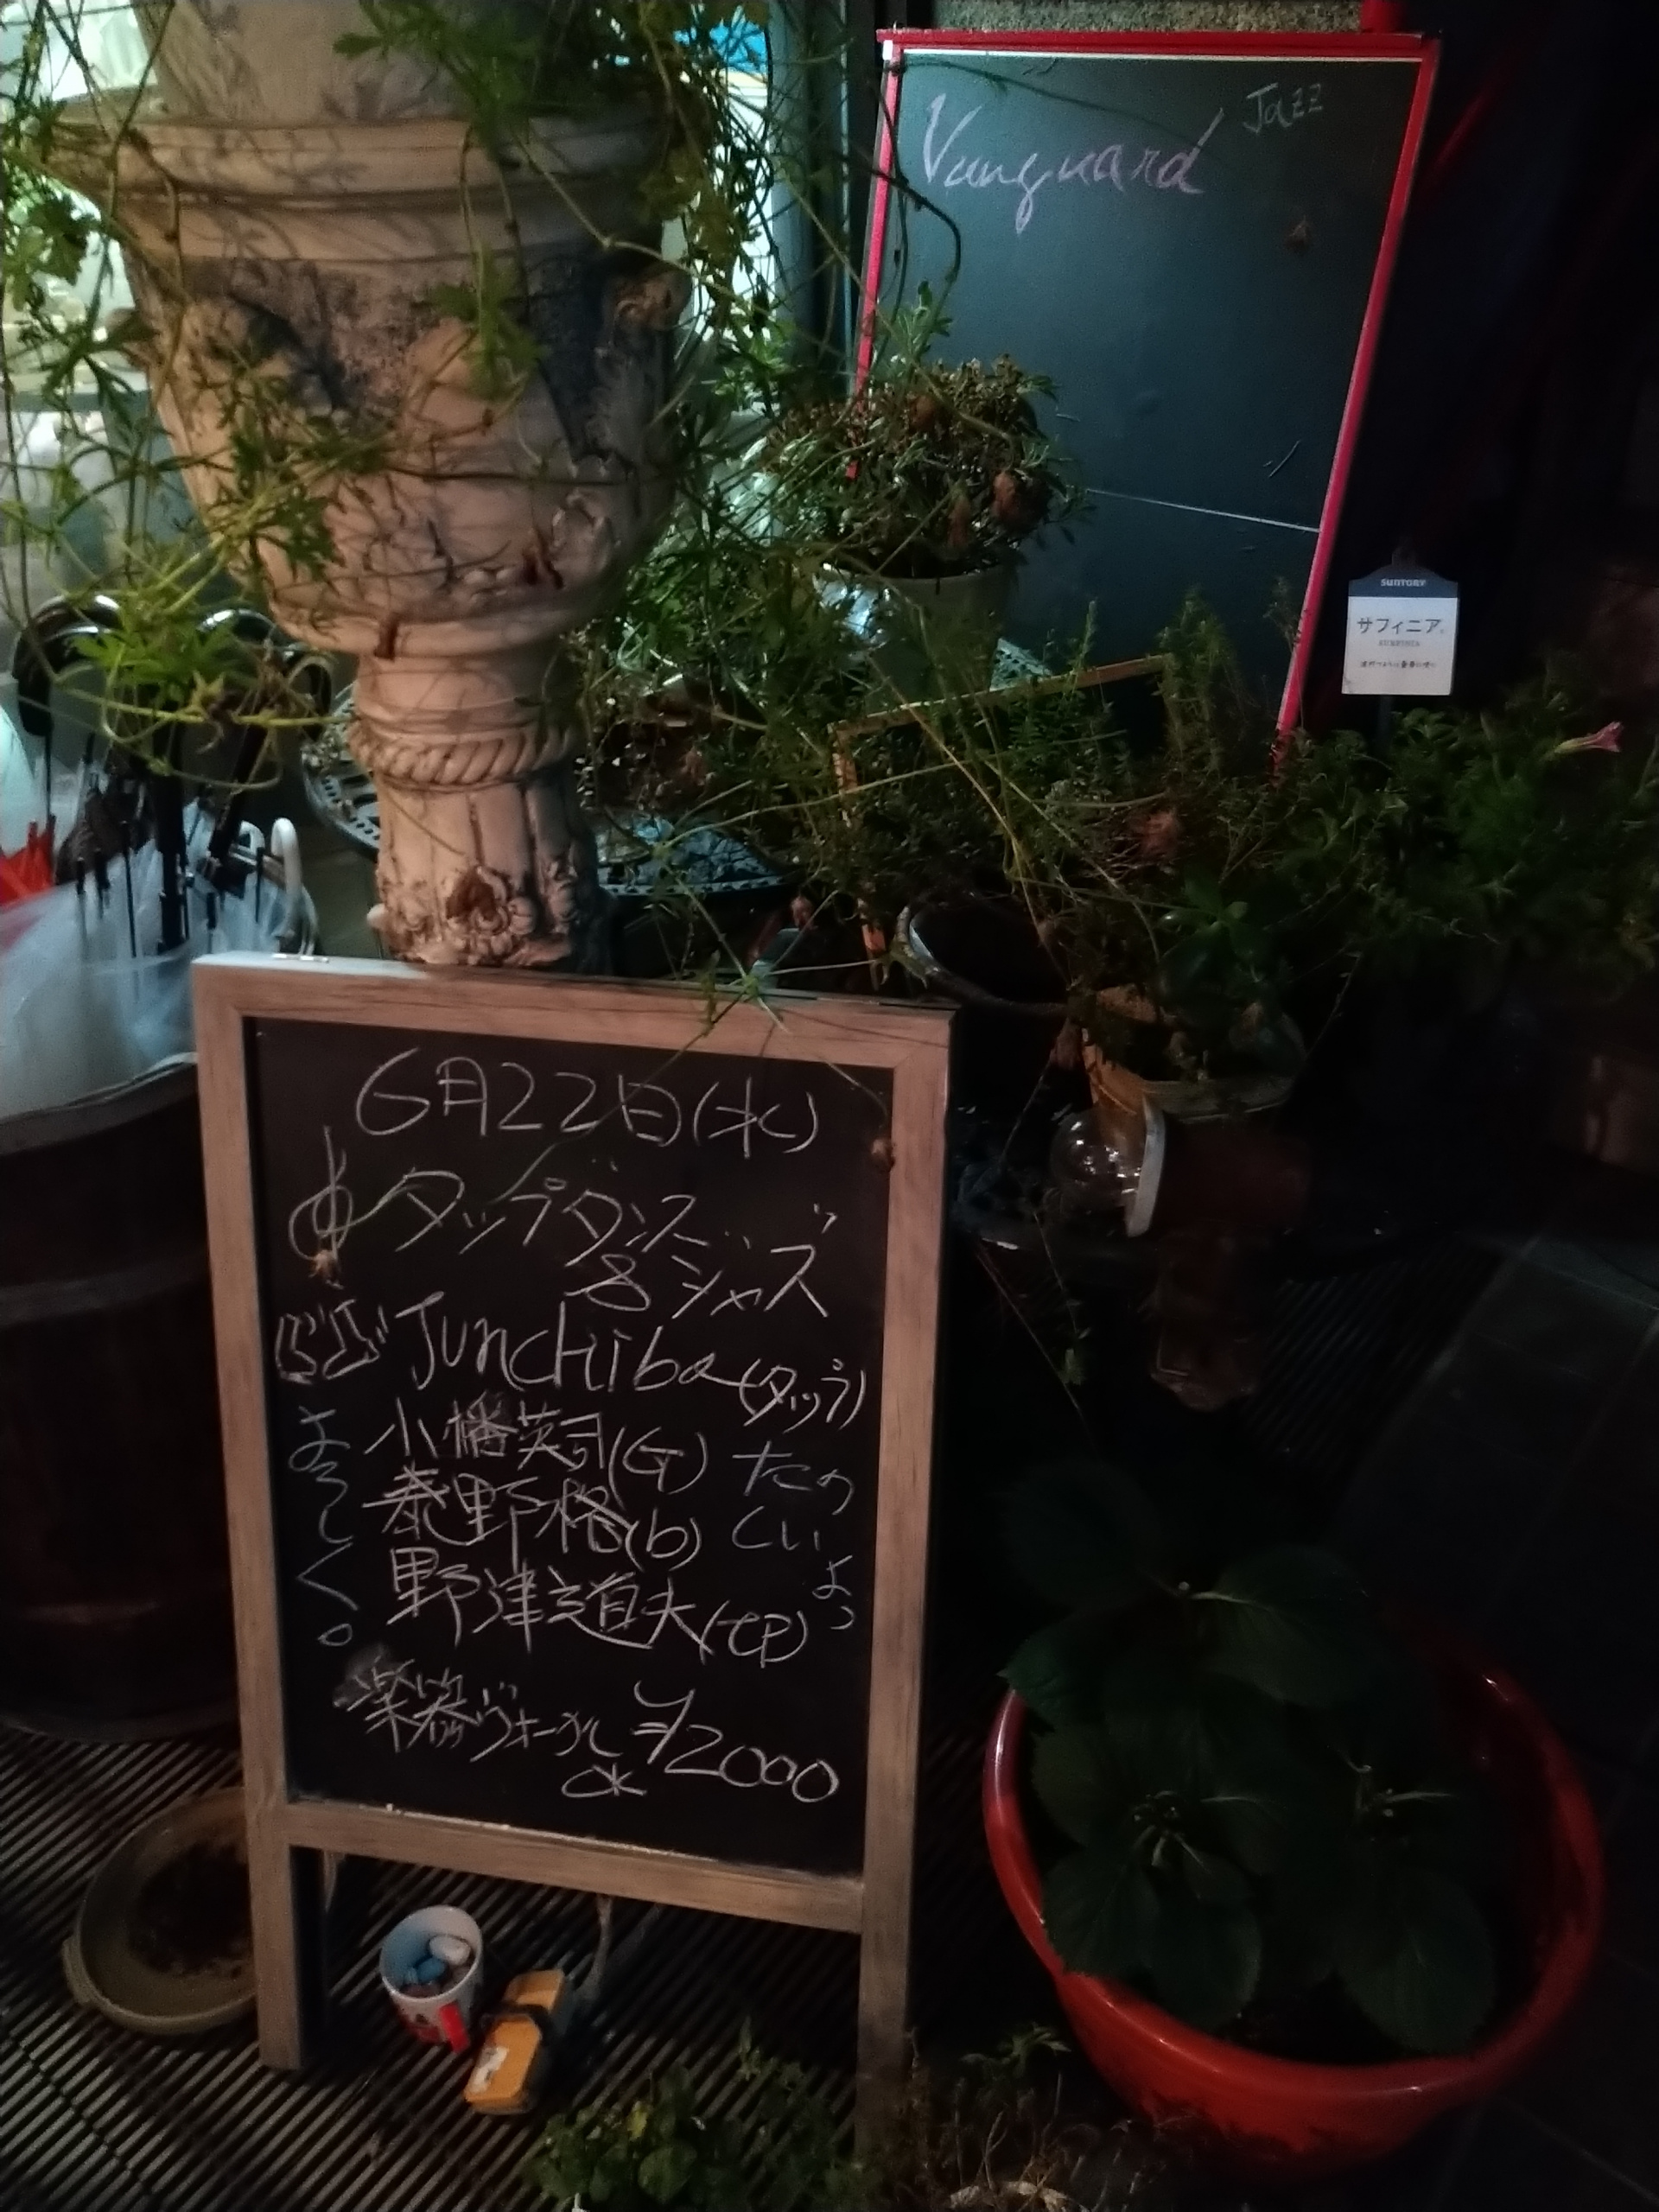 Jazz
Vanguard
SUNTORY
サフィニア®
6月22日(水)
タップダンス
&ジャズ
JunChiba(タップ)
小幡英司(G)
秦野格(b)
野津道大(tp)
たの
しい
よっ
よろしく。
楽器ヴォーカル
OK
¥2000